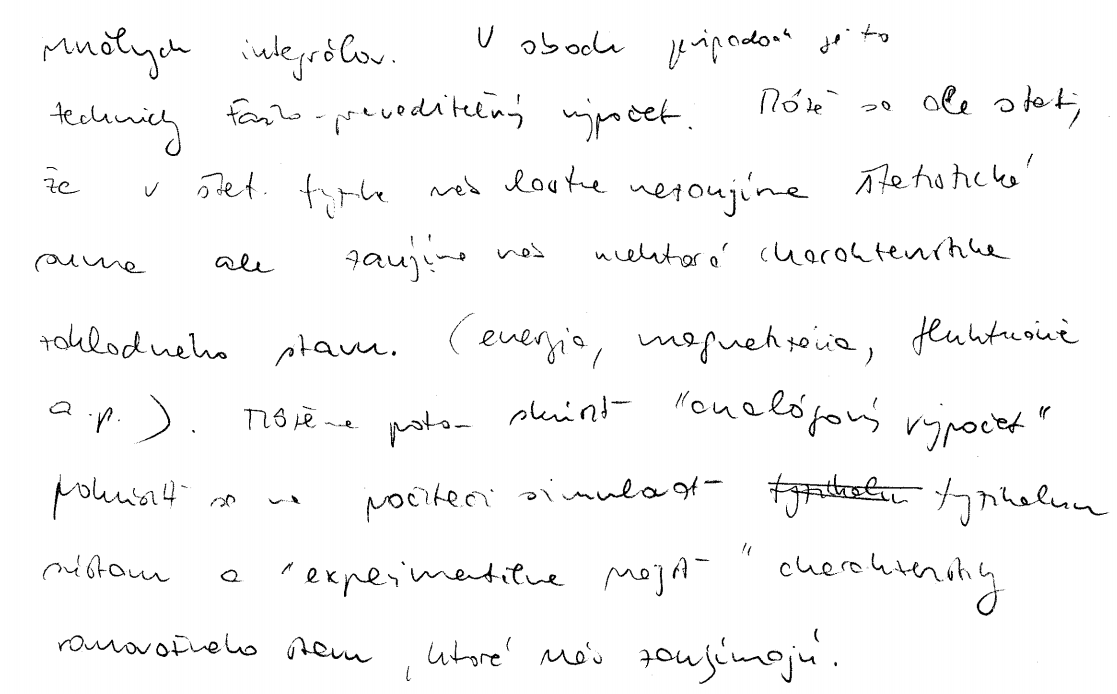 mnohých integrálov. V oboch prípadoch je to
technicky ťažko-prevediteľný výpočet. Môže sa ale stať,
že v štat. fyzike nás vlastne nezaujíma štatistická
suma ale zaujíma nás niektoré charakteristika
základného stavu. (energia, magnetizácia, fluktuácie
a.p.). Môžeme potom skúsiť "analógový výpočet"
pokúsiť sa na počítači simulovať fyzikálnu
sústavu a "experimentálne nájsť" charakteristiky
rovnovážneho stavu, ktoré nás zaujímajú.